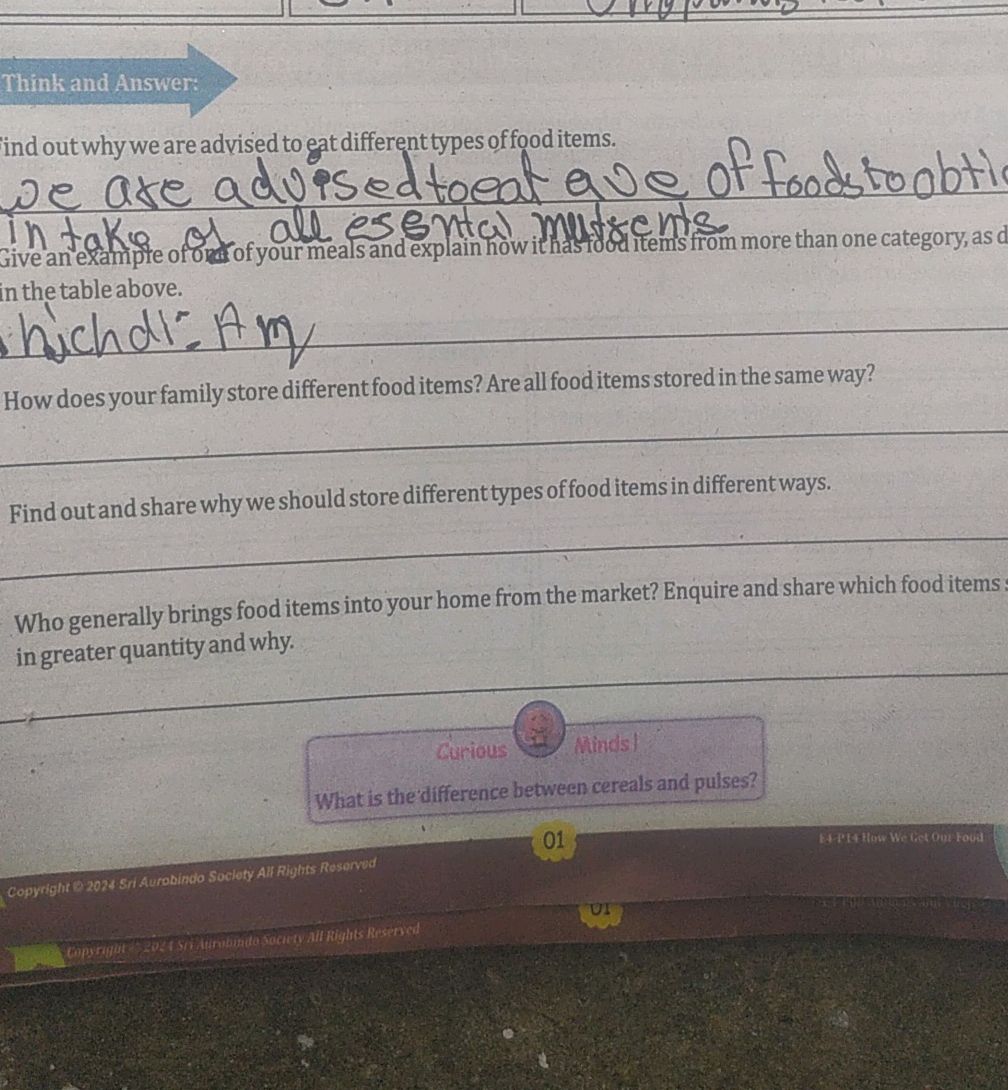 Think and Answer:
ind out why we are advised to eat different types of food items.
we are advised to eat of foods to
in take of all esental
Give an example of one of your meals and explain how it has food items from more than one category, as d
in the table above.
hichdi
How does your family store different food items? Are all food items stored in the same way?
Find out and share why we should store different types of food items in different ways.
Who generally brings food items into your home from the market? Enquire and share which food items
in greater quantity and why.
Curious Minds!
What is the difference between cereals and pulses?
01
E4-P14 How We Get Our Food
Copyright © 2024 Sri Aurobindo Society All Rights Reserved
01
Copyright © 2024 Sri Aurobindo Society All Rights Reserved